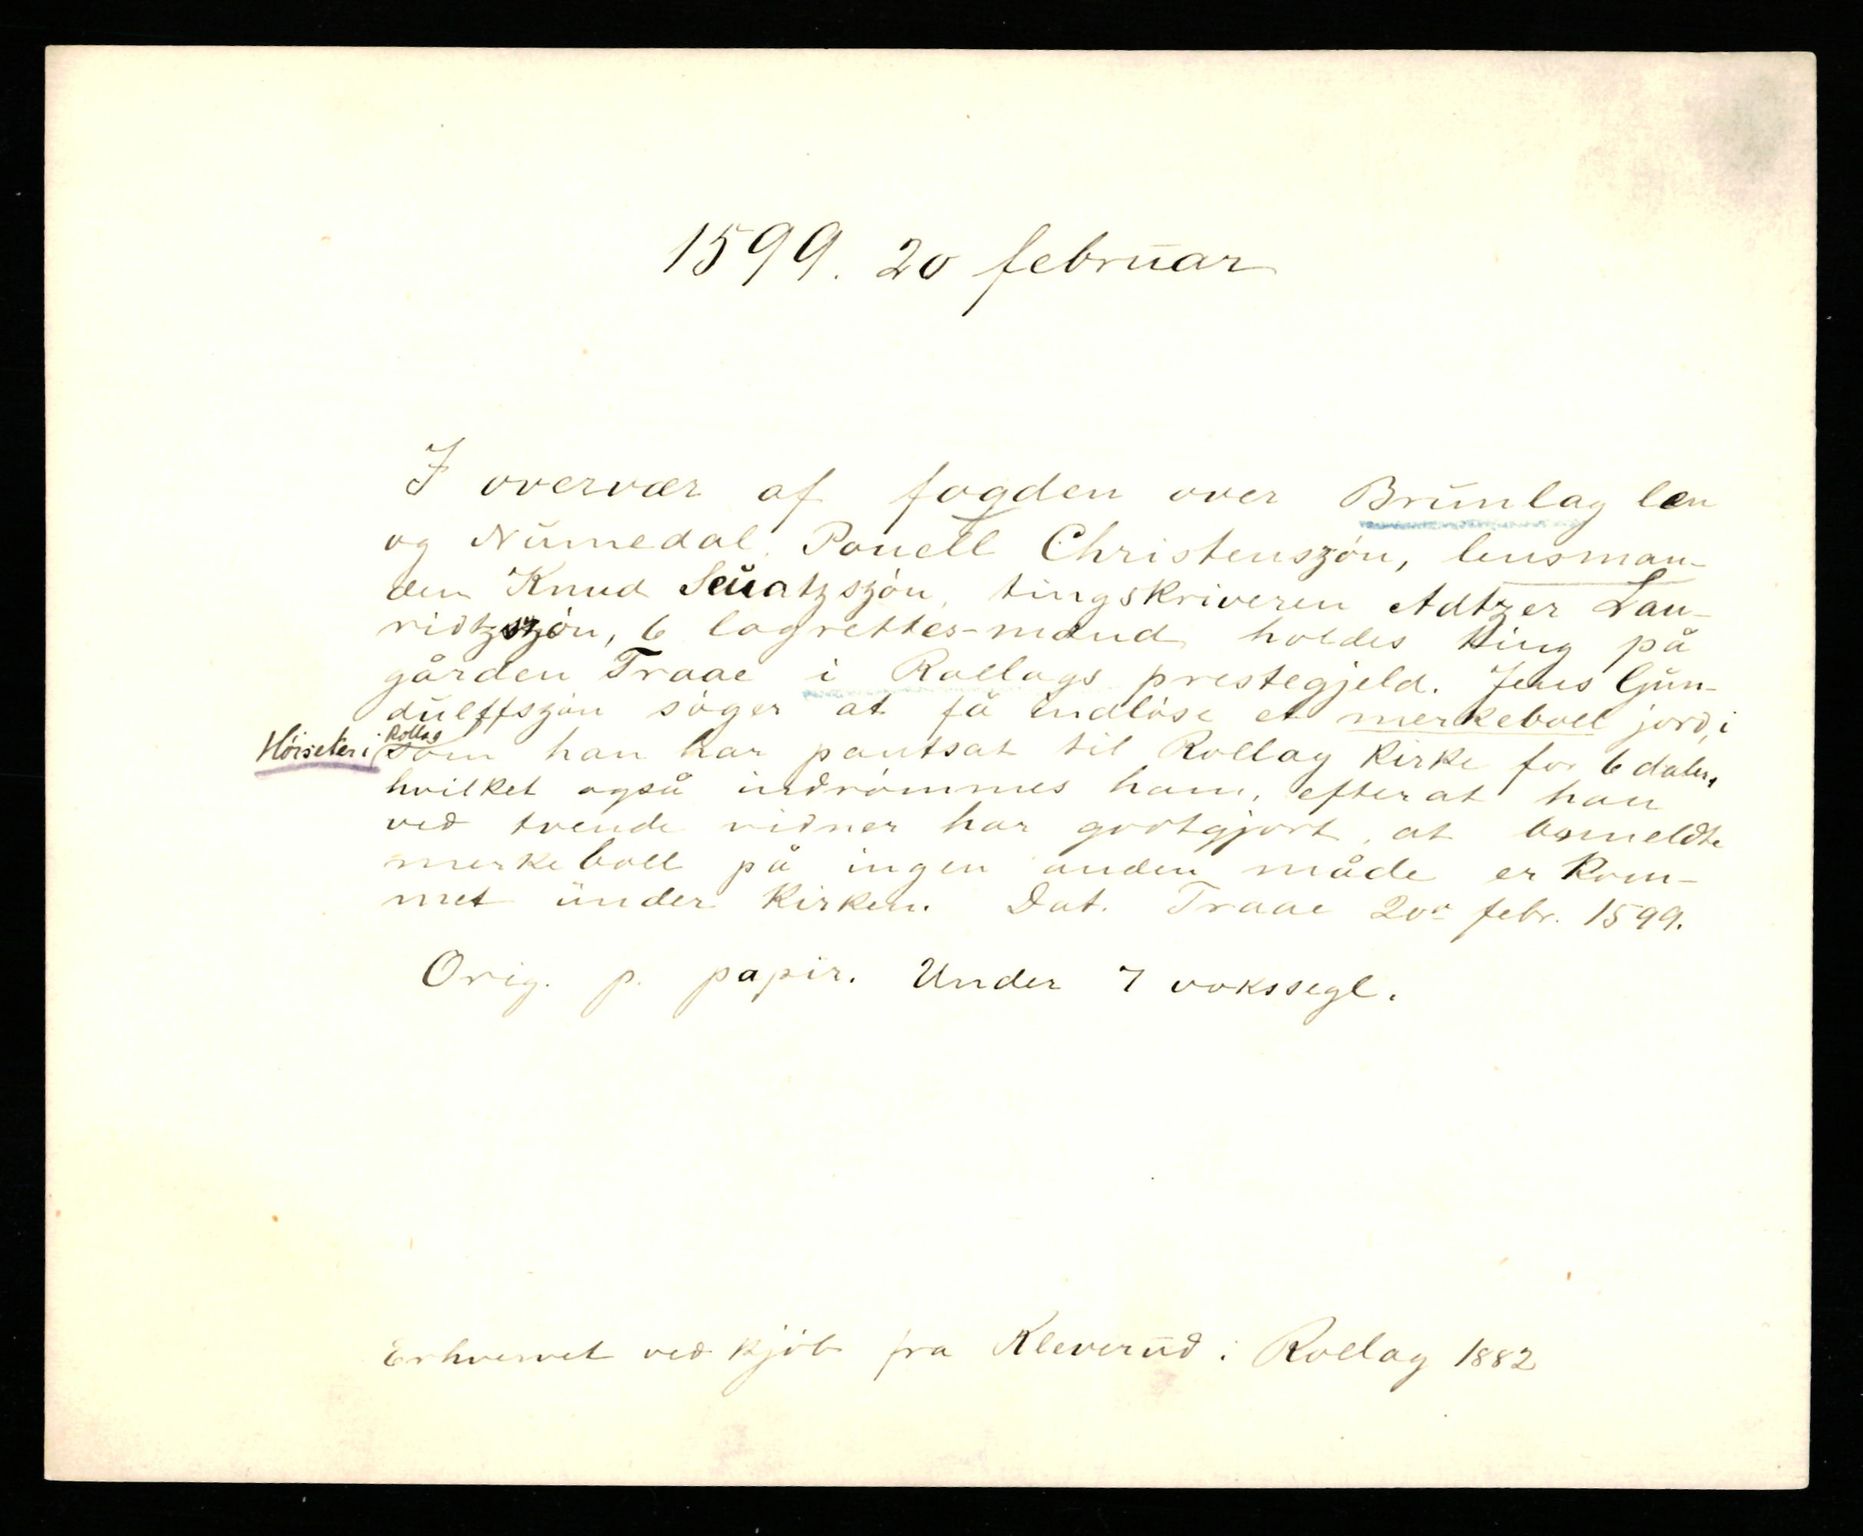 1599. 20 februar
I overvær af fogden over Brunlag len
og Numedal. Pouell Christenszøn, lensman-
den Knud Seuatzszøn, tingskriveren Adtzer Lau-
ridtzszøn, 6 lagrettes-mænd holdes ting på
gården Traae i Rollags prestegjeld. Jens Gun-
dulffszøn søger at få indløse et merkeboll jord, i
Høiseter i Rollag
som han har pantsat til Rollag kirke for 6 daler,
hvilket også indrømmes ham, efter at han
ved tvende vidner har godtgjort, at bemeldte
merkeboll på ingen anden måde er kom-
met under kirken. Dat. Traae 20de febr. 1599.
Orig. p. papir. Under 7 vokssegl.
Erhvervet ved kjöb fra Kleverud i Rollag 1882